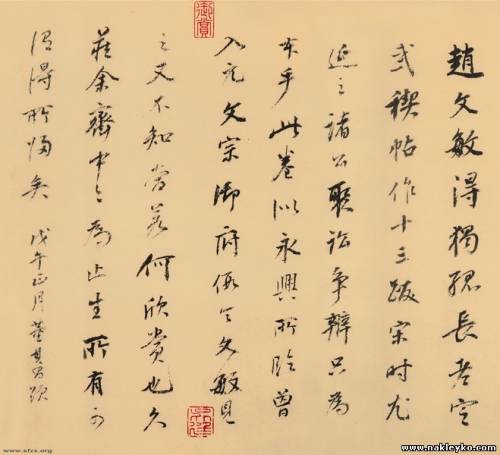 御賞
趙文敏得獨孤長老定
武禊帖作十三跋宋時尤
延之諸公聚訟爭辯只為
本乎此卷似永興所臨曾
入元文宗御府假令文敏見
之又不知當若何欣賞也久
藏余齋中今為止生所有可
謂得所歸矣 戊午正月董其昌題
www.nakleyko.com